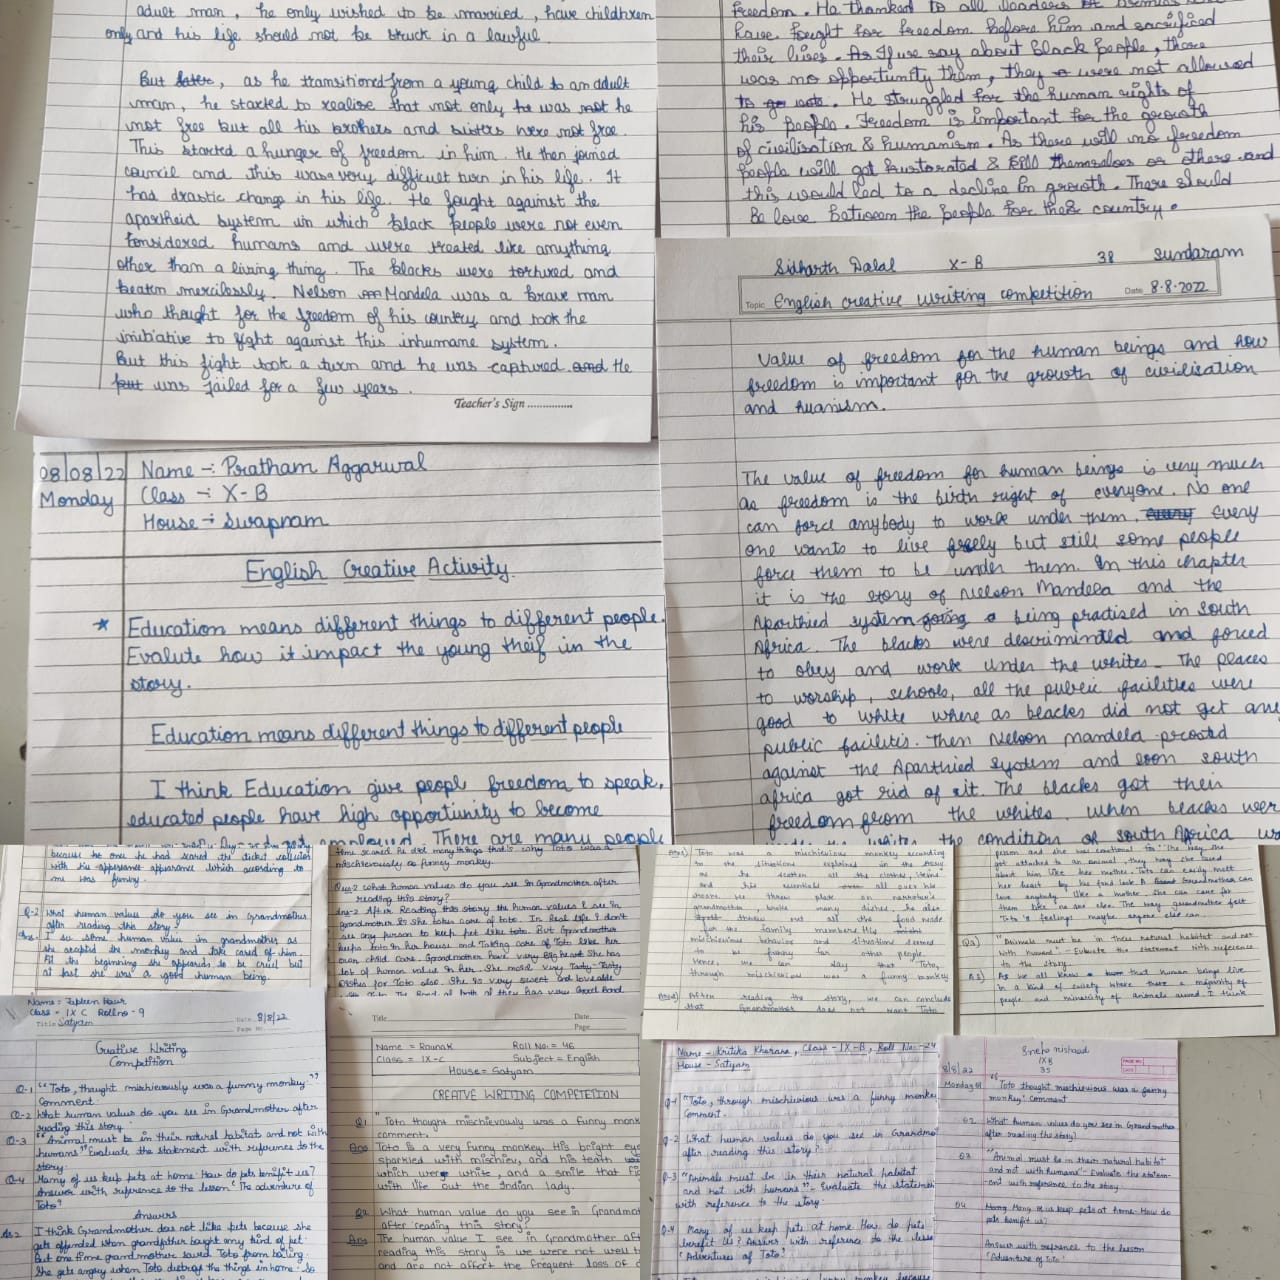 adult man, he only wished to be married, have childhren
only and his life should not be struck in a lawful.
But later, as he transitioned from a young child to an adult
man, he started to realise that not only he was not he
not free but all his brothers and sisters were not free.
This started a hunger of freedom in him. He then joined
council and this was a very difficult turn in his life. It
had drastic change in his life. He fought against the
apartheid system in which black people were not even
considered humans and were treated like anything
other than a living thing. The blacks were tortured and
beaten mercilessly. Nelson Mandela was a brave man
who thought for the freedom of his country and took the
inibiative to fight against this inhumane system.
But this fight took a turn and he was captured and He
was jailed for a few years.
Teacher's Sign ..............
freedom. He thanked to all leaders
have fought for freedom before him and sacrificed
their lives. As If we say about Black people, there
was no opportunity them, they were not allowed
to go vote. He struggled for the human rights of
his people. Freedom is important for the growth
of civilisation & humanism. As there will no freedom
people will got frustorated & kill themselves or others and
this would led to a decline in growth. There should
Be love Between the people for their country.
Sidharth Dalal X-B 38 Sundaram
Topic English creative writing competition Date 8.8.2022
Value of freedom for the human beings and how
freedom is important for the growth of civilisation
and huanism.
The value of freedom for human beings is very much
as freedom is the birth right of everyone. No one
can force anybody to work under them. Every
one wants to live freely but still some people
force them to be under them. In this chapter
it is the story of Nelson Mandela and the
Aparthied system going a being practised in South
Africa. The blacks were descriminted and forced
to obey and work under the whites. The places
to worship, schools, all the public facilities were
good to white where as blacks did not get any
public facilitis. Then Nelson mandela protted
against the Aparthied system and soon south
africa got rid of it. The blacks got their
freedom from the whites. when blacks wer
the condition of South Africa
08/08/22 Name -: Pratham Aggarwal
Monday Class -: X-B
House -: Swapnam
English Creative Activity
* Education means different things to different people.
Evalute how it impact the young theif in the
story.
Education means different things to different people
I think Education give peopl freedom to speak,
educated people have high opportunity to become
employed. There are many people
because he one he had scared the ticket collector
with his appearance which according to
me was funny.
Q-2 What human value do you see in Grandmother
after reading this story?
Ans- I see some human value in grandmother as
she accepted the monkey and take cared of him.
At the beginning she appeared to be cruel but
at last she was a good human being.
mischievously a funny monkey.
Que-2 What human values do you see in Grandmother after
reading this story?
Ans-2 After Reading this story the human values I see in
grandmother is She takes care of toto. In Real life I don't
see any person to keep pet like toto. But Grandmother
keeps toto in her house and Taking care of Toto like her
own child care. Grandmother have very Big heart She has
lot of human value in her. She make very Tasty-Tasty
dishes for Toto also. She is very sweet and loveable
Ans1) Toto was a mischievious monkey according
to the situations explained in the story
as he
all over his
dishes, he also
threw out all the food made
for the family members His
mischievious behavior and situations seemed
to be funny for other people.
Hence, we can say that Toto,
through mischievious was a funny monkey
Ans2) After reading the story, we can conclude
that Grandmother does not want Toto
got attached to an animal, they way she cared
about him like her mother. Toto can easily melt
her heart by his cute look. A Grandmother can
love anybody like a mother. She can care for
them like no one else. The way grandmother felt
Toto's feelings maybe anyone else can..
Q3) "Animals must be in There natural habitat and not
with humans". Evaluate the statement with reference
to the story.
A3) As we all know that human beings live
in a kind of society where there a majority of
people and minority of animals around. I think
Name = Japleen Kaur
Class = IX C Rollno - 9
Title Satyam Date 8/8/22
Page No.
Creative Writing
Competition
Q-1 "Toto, thought mischieviously was a funny monkey."
Comment.
Q-2 What human values do you see in Grandmother after
reading this story.
Q-3 "Animal must be in their natural habitat and not with
humans" Evaluate the statement with reference to the
story.
Q-4 Many of us keep pets at home. How do pets benifit us?
Answer with reference to the lesson "The adventure of
Toto"
Answers
Ans 2 I think Grandmother does not like pets because she
gets offended when grandfather bought any kind of pet
But one time grandmother saved Toto from boiling.
She gets angry when Toto distroys the things in home. So
Title Date
Page
Name = Raunak Roll No. = 46
Class = IX-C Subject = English
House = Satyam
CREATIVE WRITING COMPETETION
Q1 "Toto thought mischievously was a funny monk
comment.
Ans Toto is a very funny monkey. His bright eyes
sparkled with mischiev, and his teeth
which were white, and a smile that
with life out the Indian lady.
Q2 What human value do you see in Grandmot
after reading this story?
Ans The human value I see in Grandmother aft
reading this story is we were not well t
and are not affort the frequent loss of
Name - Kritika Khurana, Class - IX-B, Roll No. -24
House - Satyam
Q-1 "Toto, through mischievious was a funny monkey
Comment.
Q-2 What human values do you see in Grandmot
after reading this story?
Q-3 "Animals must be in their natural habitat
and not with humans". Evaluate the statemen
with reference to the story.
Q-4 Many of us keep pets at home. How do pets
benefit us? Answer with reference to the lesso
'Adventures of Toto'.
Sneha nishad
IX B
35
8/8/22
Monday Q1 "Toto thought mischievious was a funny
monkey" comment
Q2 What human values do you see in Grandmother
after reading this story)
Q3 "Animal must be in their natural habitat
and not with humans" - Evaluate the statem-
ent with reference to the story
Q4 Many of us keep pets at home. How do
pets benefit us?
Answer with refrence to the lesson
'Adventure of Toto'.